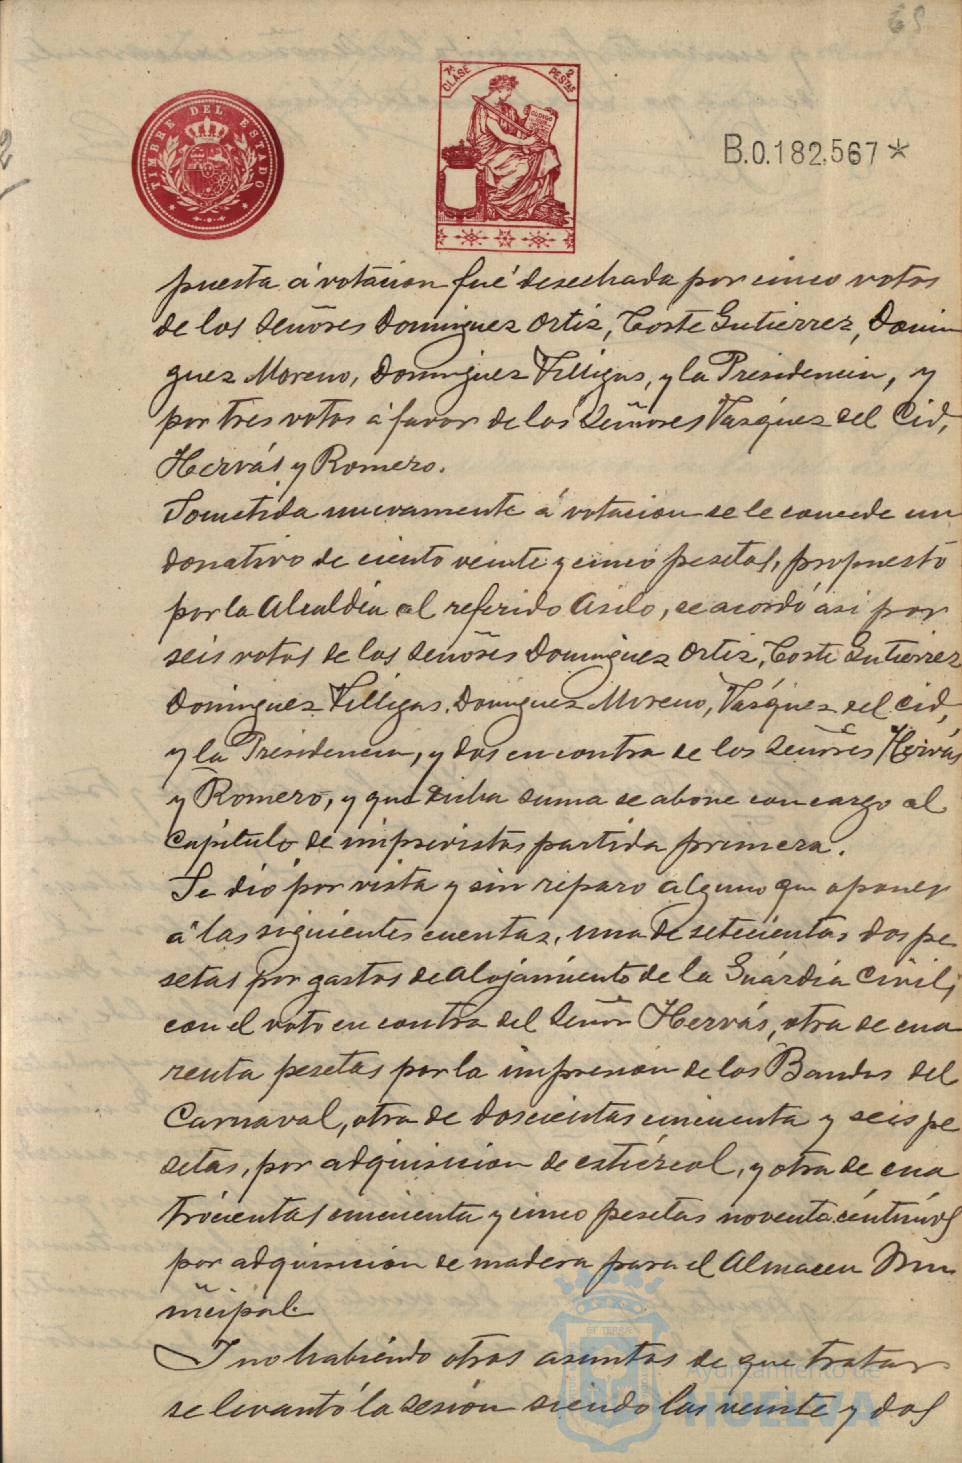 69
TIMBRE DEL ESTADO
7ª CLASE
2 PESTAS
B.0.182.567*
puesta á votacion fué desechada por cinco votos
de los Señores Dominguez Ortiz, Coste Gutierrez, Domin
guez Moreno, Dominguez Villigas, y la Presidencia, y
por tres votos á favor de los Señores Vazquez del Cid,
Hervás y Romero.
Sometida nuevamente á votacion se le concede un
donativo de ciento veinte y cinco pesetas, propuesto
por la Alcaldia al referido Asilo, se acordó asi por
seis votos de los Señores Dominguez Ortiz, Coste Gutierrez
Dominguez Villigas, Dominguez Moreno, Vázquez del Cid,
y la Presidencia, y dos en contra de los Señores Hervás
y Romero, y que dicha suma se abone con cargo al
Capítulo de imprevistos partida primera.
Se dió por vista y sin reparo alguno que oponer
á las siguientes cuentas, una de setecientas dos pe
setas por gastos de alojamiento de la Guárdia Civil,
con el voto en contra del Señor Hervás, otra de cua
renta pesetas por la impresion de los Bandos del
Carnaval, otra de doscientas cincuenta y seis pe
setas, por adquisicion de estiércol, y otra de cua
trocientas cincuenta y cinco pesetas noventa céntimos
por adquisicion de madera para el Almacen Mu
nicipal.
I no habiéndo otros asuntos de que tratar
se levantó la sesión siendo las veinte y dos
Ayuntamiento de
HUELVA